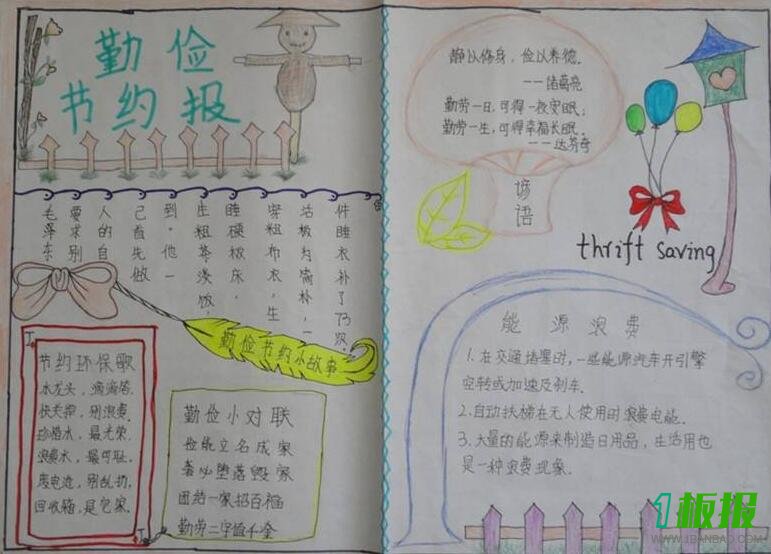 勤俭
节约报
毛泽东
要求别
人的自
己首先做
到。他一
生粗茶淡饭,
睡硬板床,
穿粗布衣,生
活极为简朴,一
件睡衣补了73次.
勤俭节约小故事
节约环保歌
水龙头,滴滴答.
快关掉,别浪费.
珍惜水,最光荣.
浪费水,最可耻.
废电池,别乱扔.
回收箱,是它家.
勤俭小对联
俭能立名成家
奢必堕落毁家
团结一家招百福
勤劳二字值千金
静以修身,俭以养德.
——诸葛亮
勤劳一日,可得一夜安眠;
勤劳一生,可得幸福长眠.
——达芬奇
谚语
thrift saving
能源浪费
1.在交通堵塞时,一些能源汽车开引擎
空转或加速及刹车.
2.自动扶梯在无人使用时浪费电能.
3.大量的能源来制造日用品,生活用也
是一种浪费现象.
1板报
WWW.1BANBAO.COM